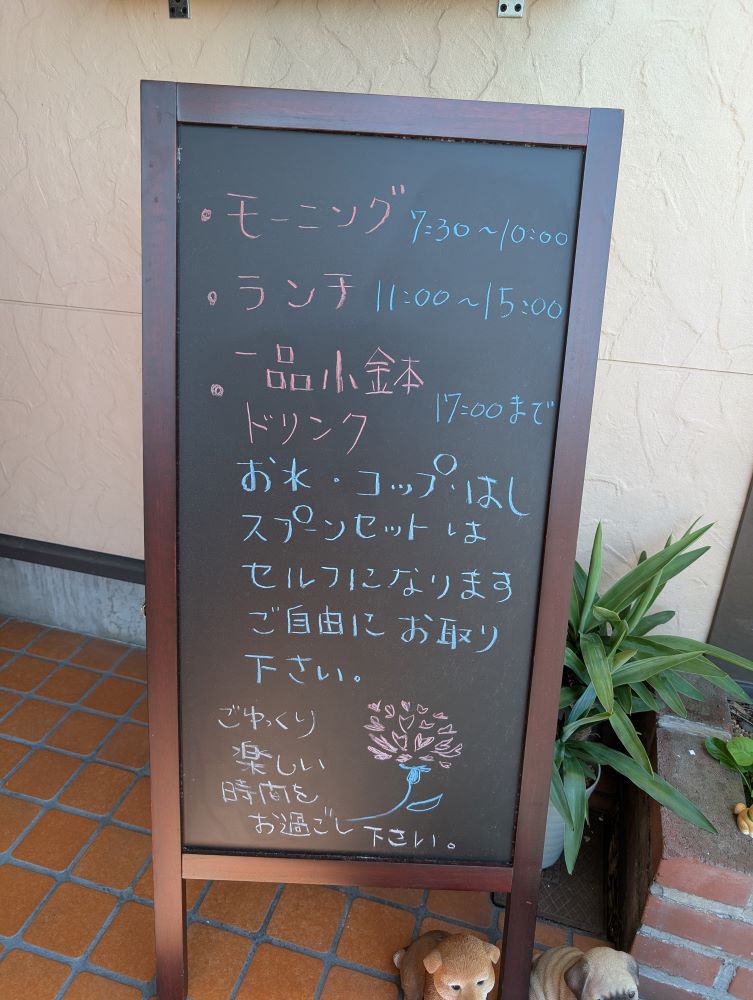 ・モーニング 7:30～10:00
・ランチ 11:00～15:00
・一品小鉢
ドリンク 17:00まで
お水・コップ・はし
スプーンセットは
セルフになります
ご自由にお取り
下さい。
ごゆっくり
楽しい
時間を
お過ごし下さい。